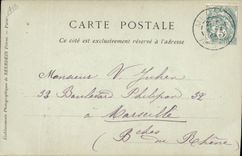 CARTE POSTALE
Ce côté est exclusivement réservé à l'adresse
Monsieur V. Julien
32 Boulevard Philippon 32
à Marseille
(Bches du Rhône)
Etablissements Photographiques de NEURDEIN Frères. — Paris